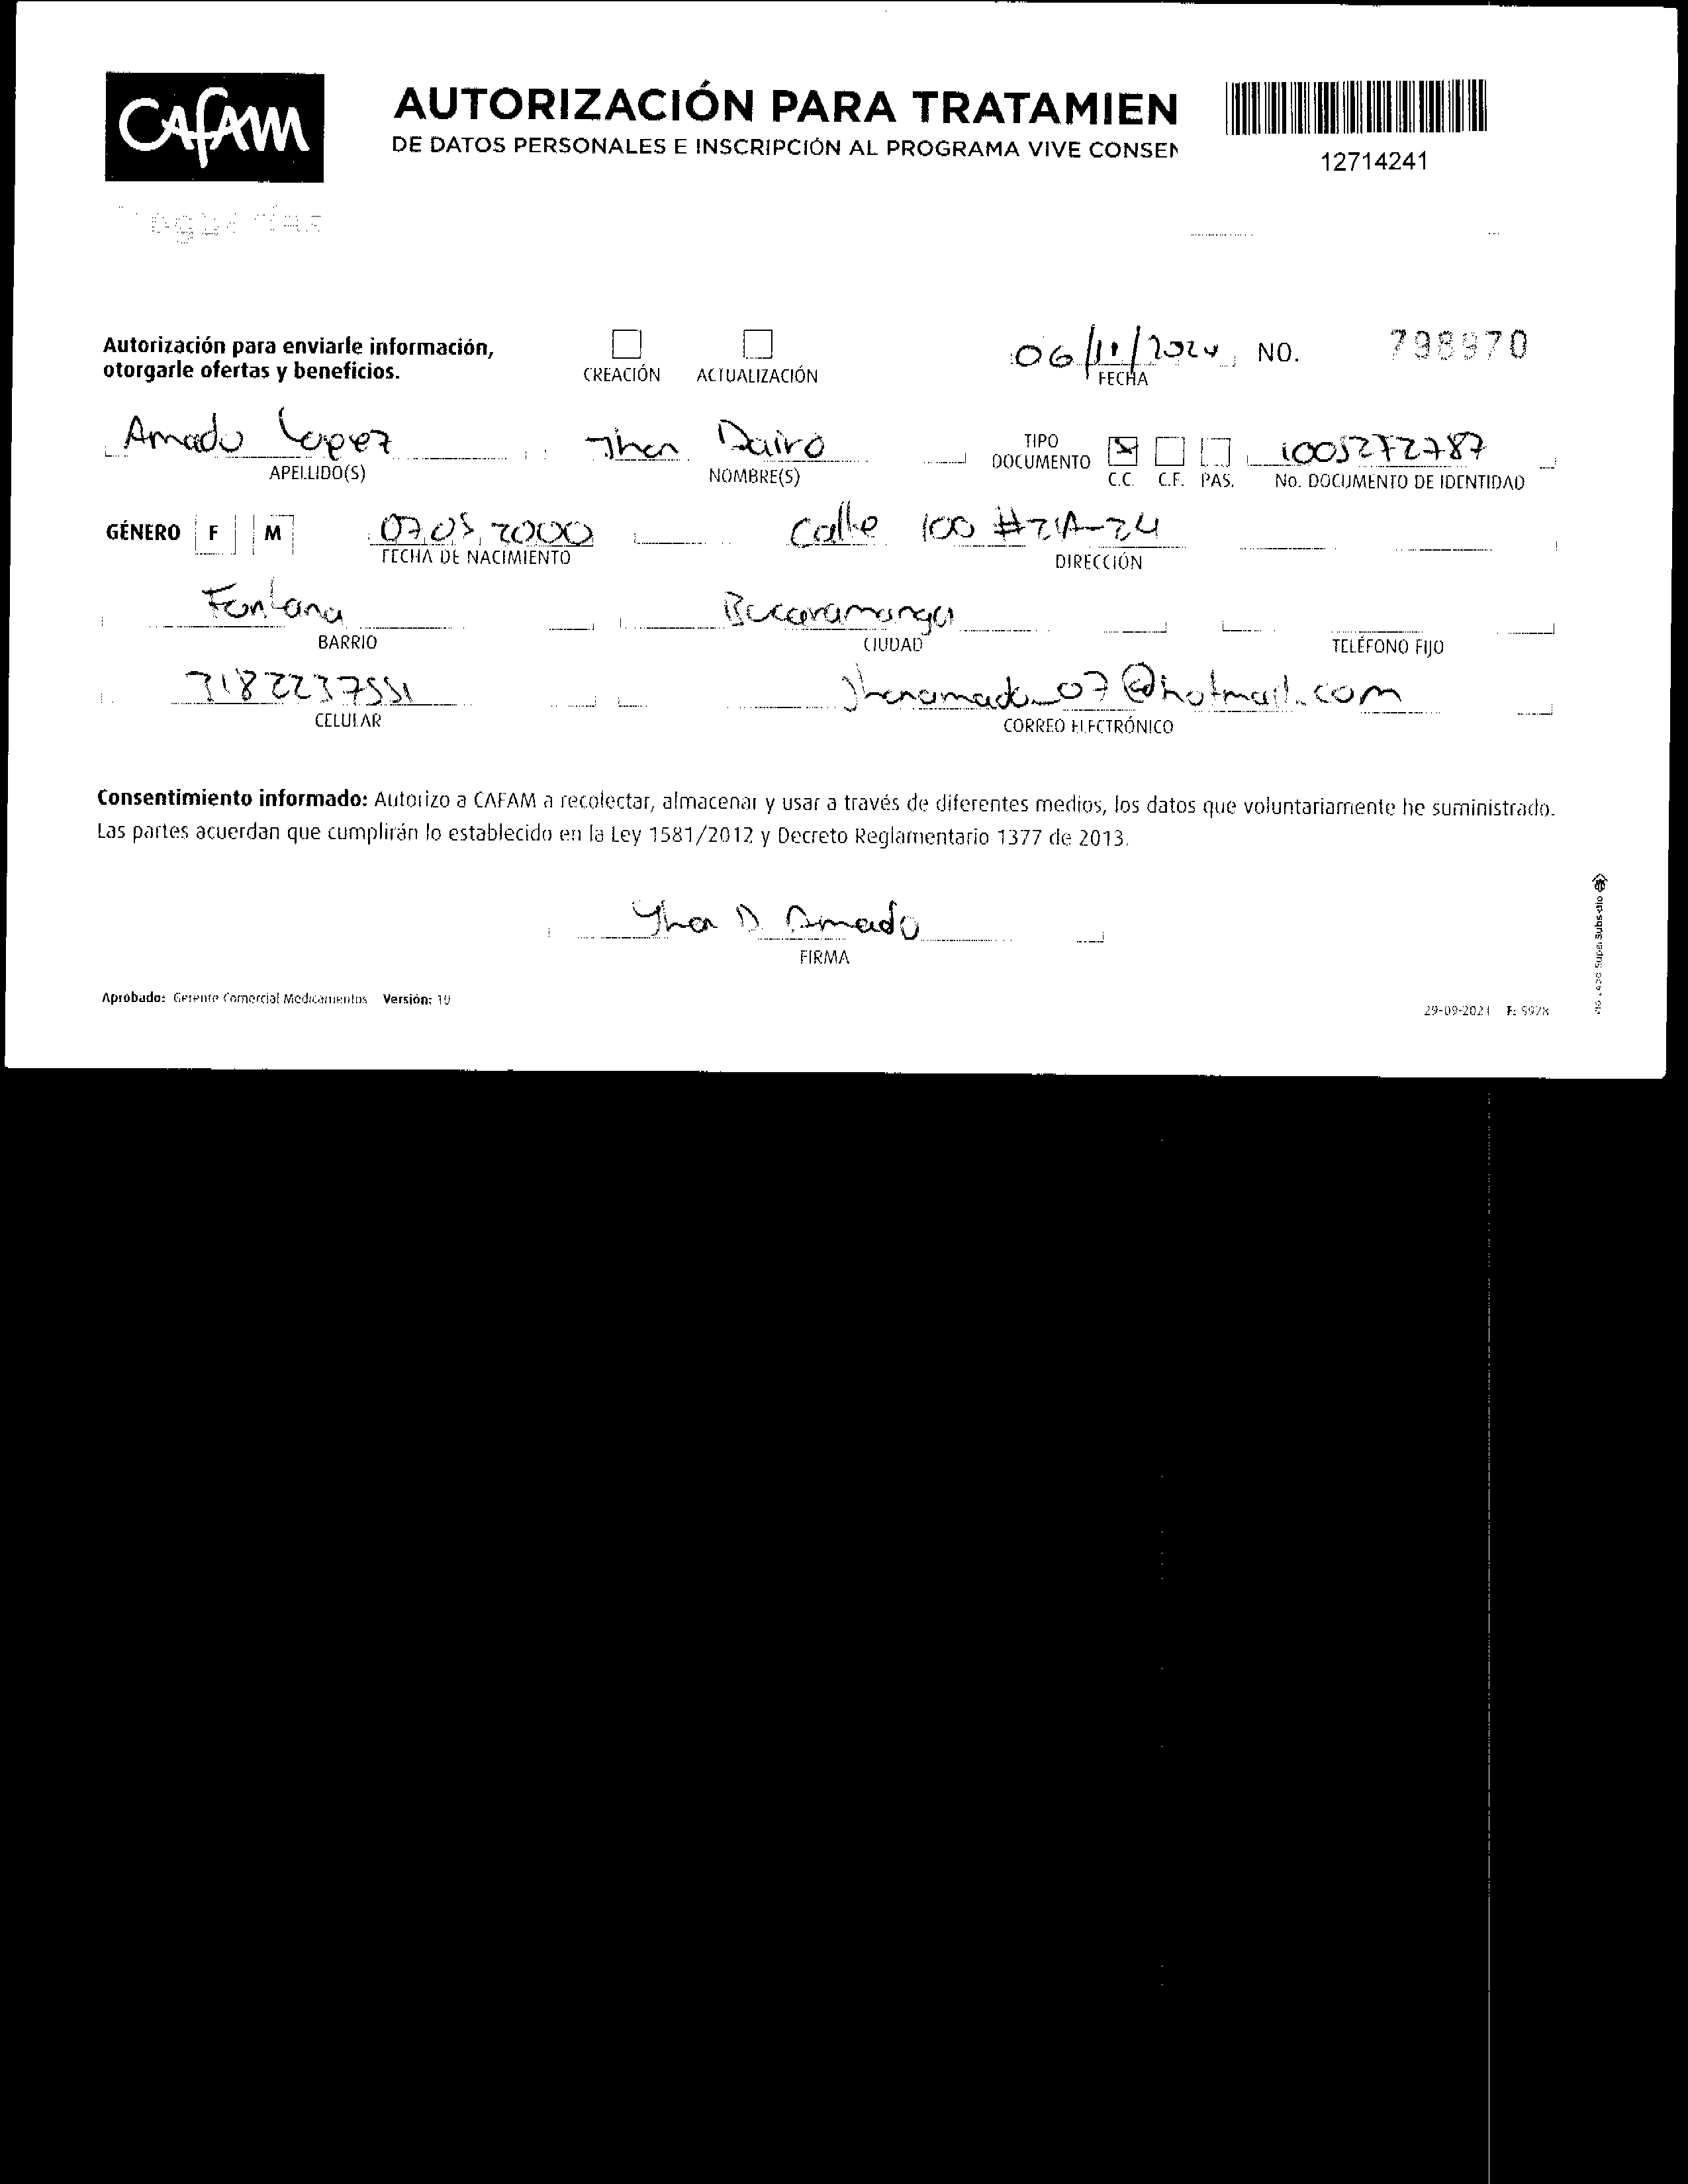 CAFAM
AUTORIZACIÓN PARA TRATAMIEN
DE DATOS PERSONALES E INSCRIPCIÓN AL PROGRAMA VIVE CONSEN
12714241
Droguerías
Autorización para enviarle información,
otorgarle ofertas y beneficios.
CREACIÓN ACTUALIZACIÓN
06/11/2024 NO. 798970
FECHA
Amado Lopez Jhon Dairo TIPO DOCUMENTO X 1005272787
APELLIDO(S) NOMBRE(S) C.C. C.E. PAS. No. DOCUMENTO DE IDENTIDAD
GÉNERO F M 07 05 2000 Calle 100 #21A-24
FECHA DE NACIMIENTO DIRECCIÓN
Fontana Bucaramanga
BARRIO CIUDAD TELÉFONO FIJO
3182237551 Jhonamado_07@hotmail.com
CELULAR CORREO ELECTRÓNICO
Consentimiento informado: Autorizo a CAFAM a recolectar, almacenar y usar a través de diferentes medios, los datos que voluntariamente he suministrado.
Las partes acuerdan que cumplirán lo establecido en la Ley 1581/2012 y Decreto Reglamentario 1377 de 2013.
Jhon D Amado
FIRMA
Aprobado: Gerente Comercial Medicamentos Versión: 10
29-09-2021 F: 5928
SuperSubsidio